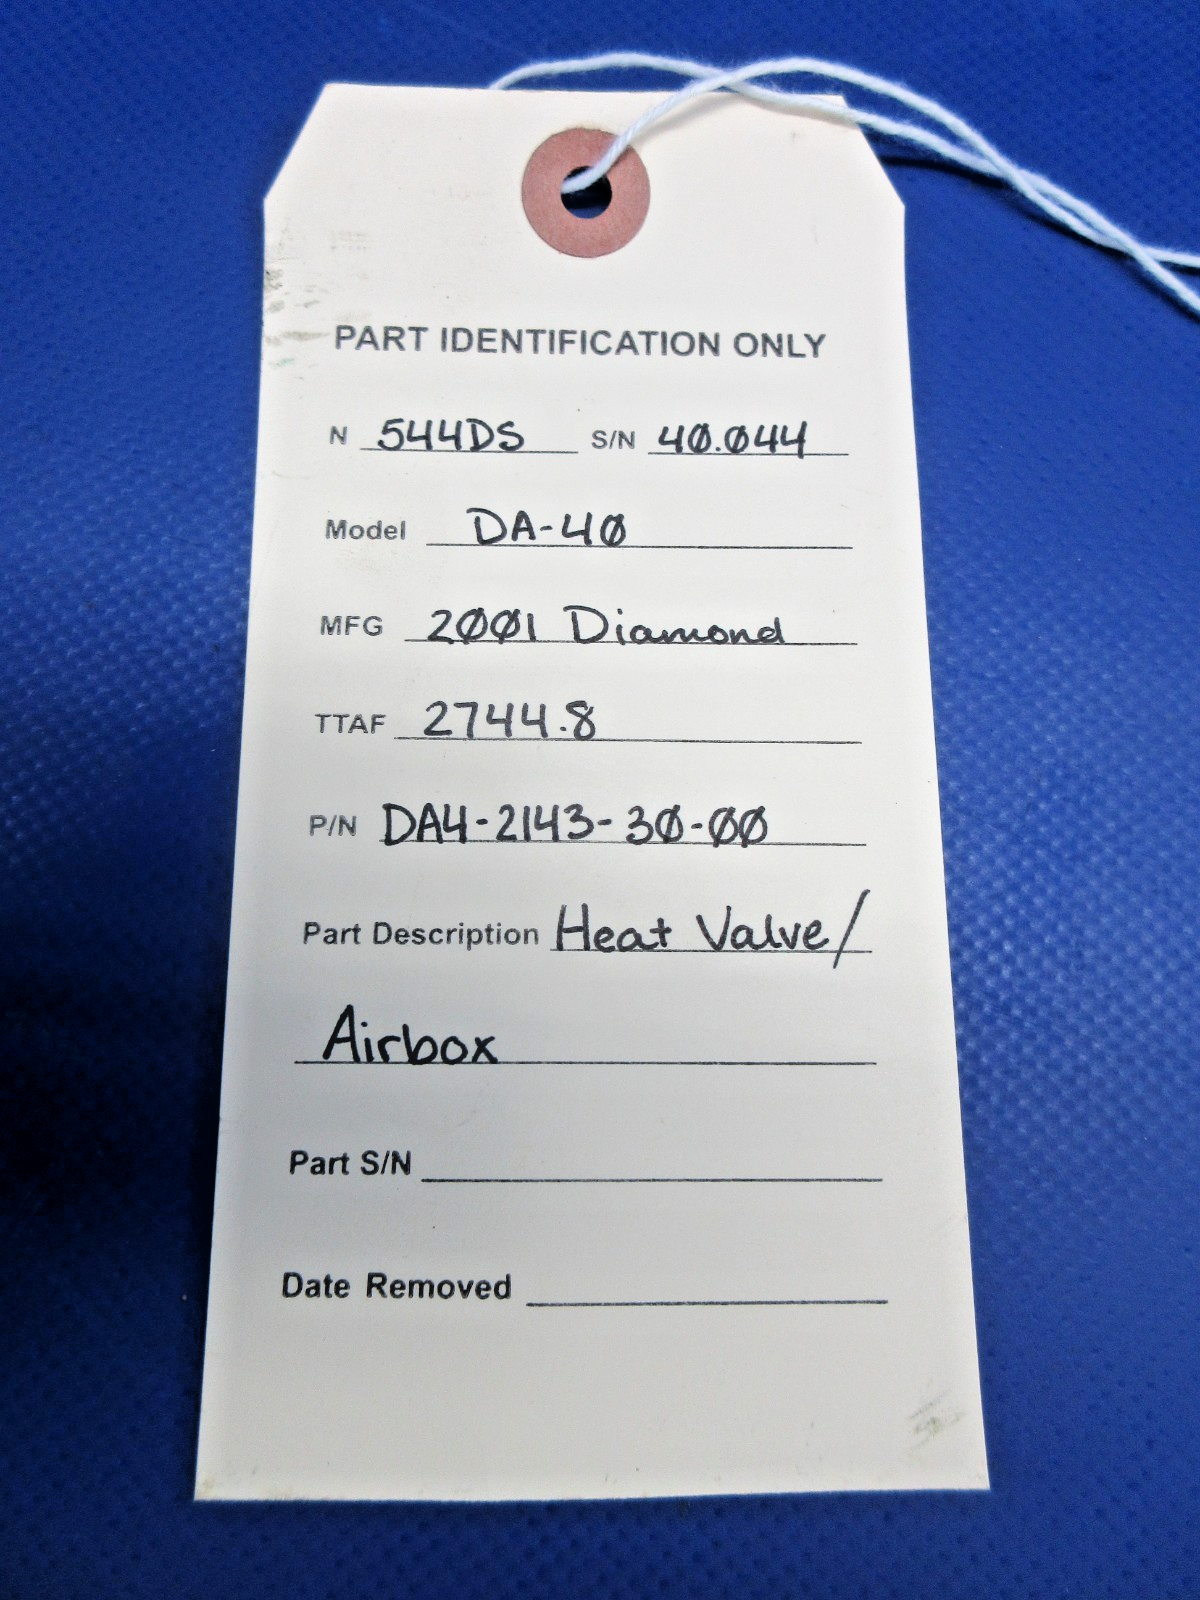 PART IDENTIFICATION ONLY
N 544DS S/N 40.044
Model DA-40
MFG 2001 Diamond
TTAF 2744.8
P/N DA4-2143-30-00
Part Description Heat Valve/
Airbox
Part S/N
Date Removed